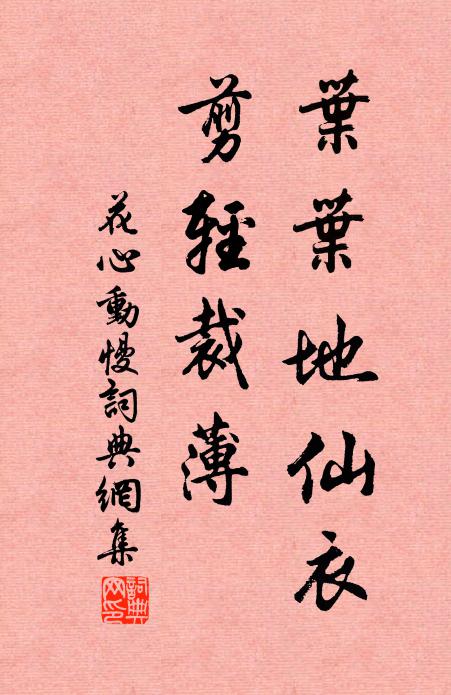 葉葉地仙衣
剪輕裁薄
花心動慢詞典網集
詞典網印